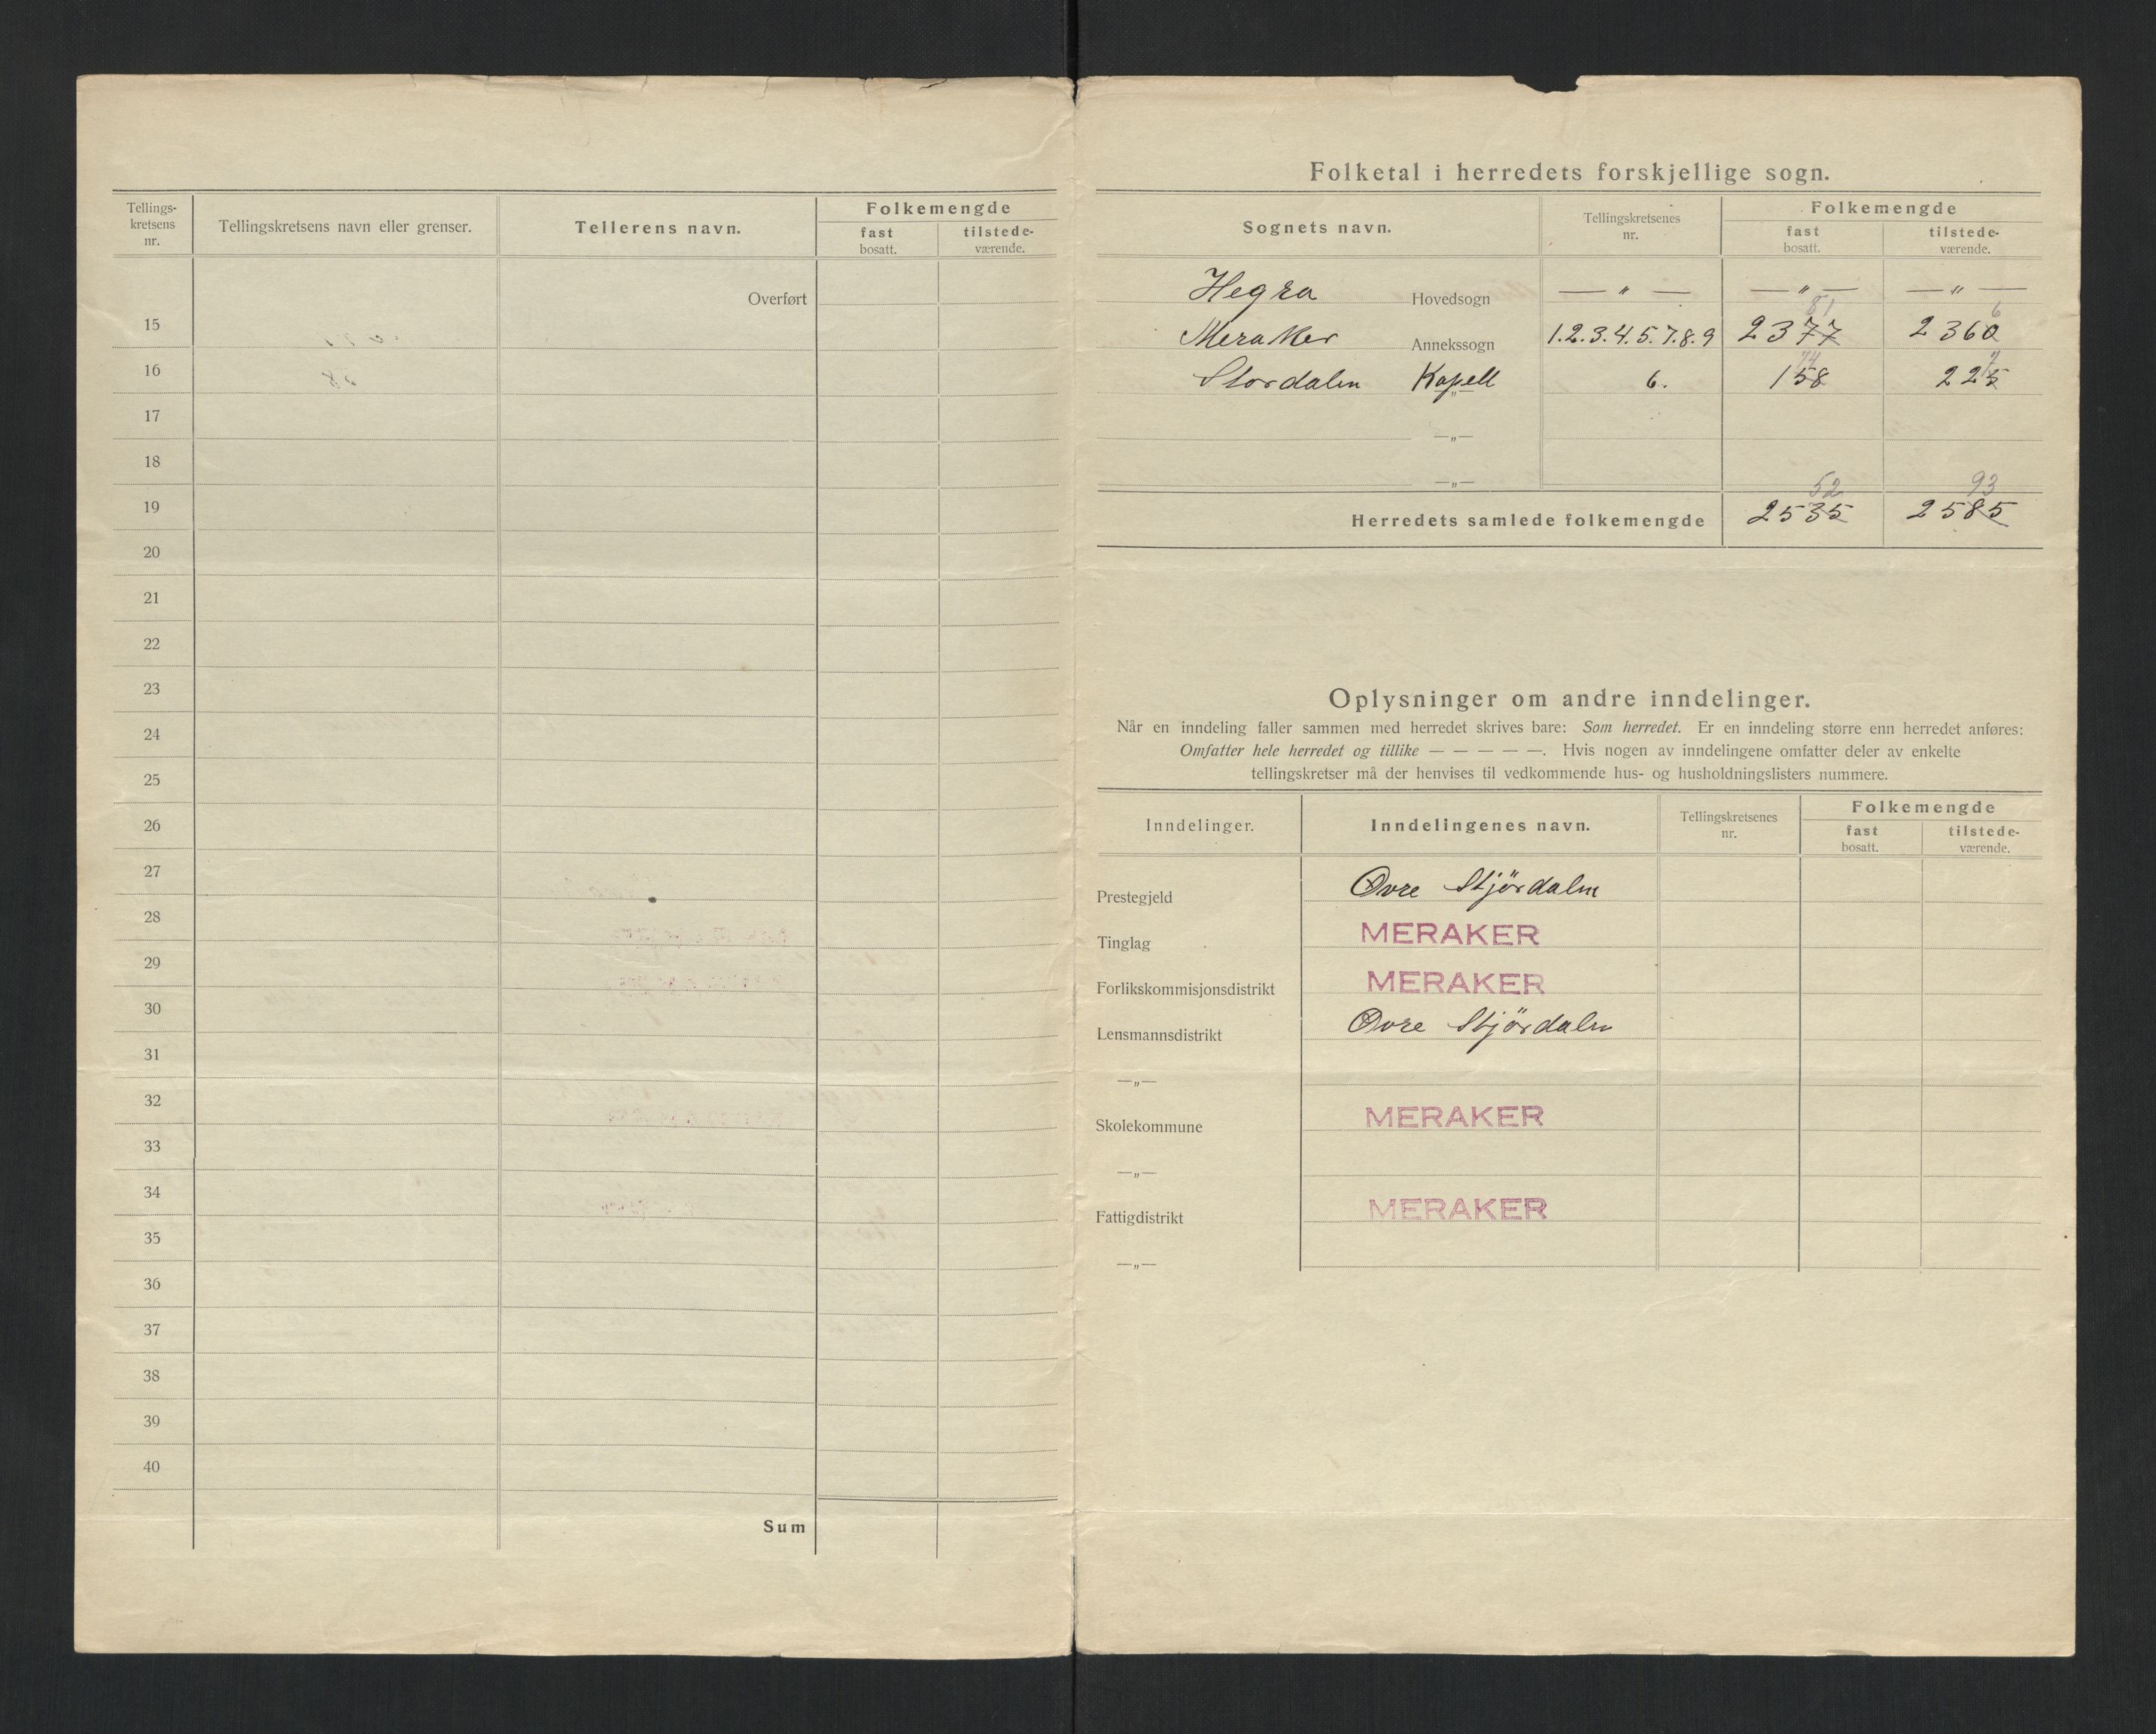 Tellings-
kretsens
nr.
Tellingskretsens navn eller grenser.
Tellerens navn.
Folkemengde
fast
bosatt.
tilstede-
værende.
Overført
15
16
17
18
19
20
21
22
23
24
25
26
27
28
29
30
31
32
33
34
35
36
37
38
39
40
Sum
Folketal i herredets forskjellige sogn.
Sognets navn.
Tellingskretsenes
nr.
Folkemengde
fast
bosatt.
tilstede-
værende.
Hegra Hovedsogn — „ — — „ — — „ —
81 6
Meraker Annekssogn 1.2.3.4.5.7.8.9 2377 2360
7
Stordalen Kapell 6. 158 225
—„—
—„—
52 93
Herredets samlede folkemengde 2535 2585
Oplysninger om andre inndelinger.
Når en inndeling faller sammen med herredet skrives bare: Som herredet. Er en inndeling større enn herredet anføres:
Omfatter hele herredet og tillike — — — — —. Hvis nogen av inndelingene omfatter deler av enkelte
tellingskretser må der henvises til vedkommende hus- og husholdningslisters nummere.
Inndelinger.
Inndelingenes navn.
Tellingskretsenes
nr.
Folkemengde
fast
bosatt.
tilstede-
værende.
Prestegjeld Øvre Stjördalen
Tinglag MERAKER
Forlikskommisjonsdistrikt MERAKER
Lensmannsdistrikt Øvre Stjördalen
—„—
Skolekommune MERAKER
—„—
Fattigdistrikt MERAKER
—„—